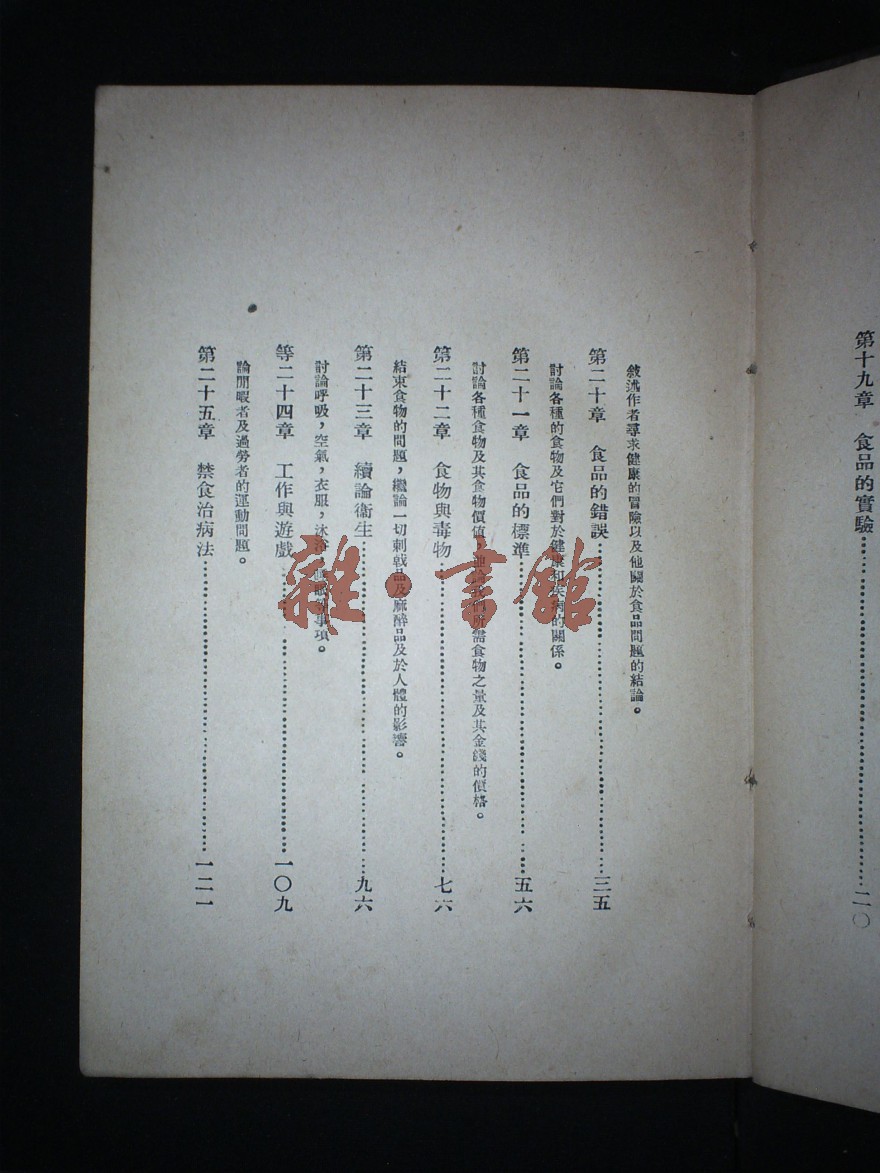 第十九章　食品的實驗……二〇
敘述作者尋求健康的冒險以及他關於食品問題的結論。
第二十章　食品的錯誤……三五
討論各種的食物及它們對於健康和疾病的關係。
第二十一章　食品的標準……五六
討論各種食物及其食物價値，並論我們所需食物之量及其金錢的價格。
第二十二章　食物與毒物……七六
結束食物的問題，繼論一切刺戟品及麻醉品及於人體的影響。
第二十三章　續論衞生……九六
討論呼吸，空氣，衣服，沐浴，睡眠等事項。
等二十四章　工作與遊戲……一〇九
論閒暇者及過勞者的運動問題。
第二十五章　禁食治病法……一二一
雜·書館